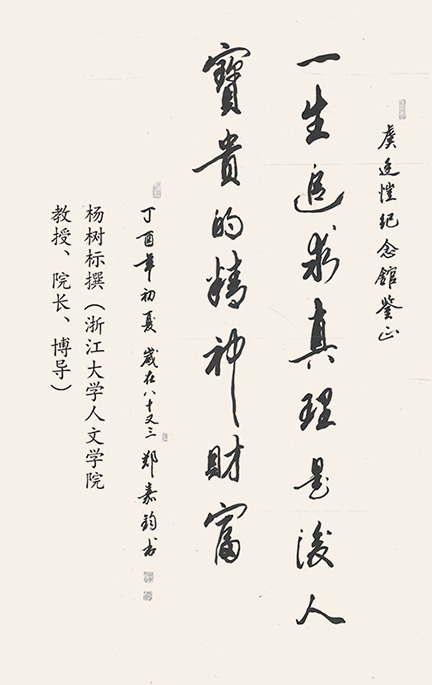 虞廷愷纪念館鉴正
一生追求真理是後人
寶貴的精神財富
丁酉年初夏 歲在八十又三 郑嘉钧书
杨树标撰（浙江大学人文学院
教授、院长、博导）